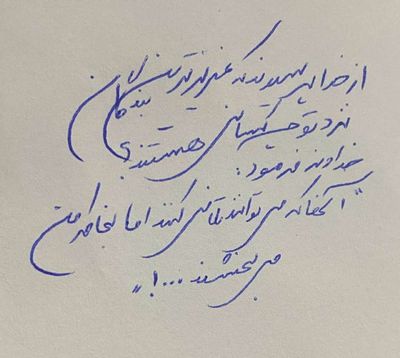 از خدا پرسیدند که عزیزترین بندگان
نزد تو چه کسانی هستند؟
خداوند فرمود:
"آنهایی که می‌توانند تلافی کنند اما بخاطر من
می بخشند ...!"